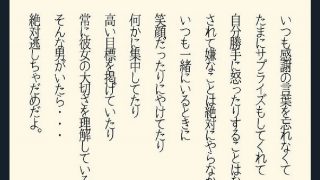 いつも感謝の言葉を忘れなくて
たまにサプライズもしてくれて
自分勝手に怒ったりすることはな
されて嫌なことは絶対にやらなか
いつも一緒にいるときに
笑顔だったりにやけてたり
何かに集中してたり
高い目標を掲げていたり
常に彼女の大切さを理解してい
そんな男がいたら・・・
絶対逃しちゃだめだよ。